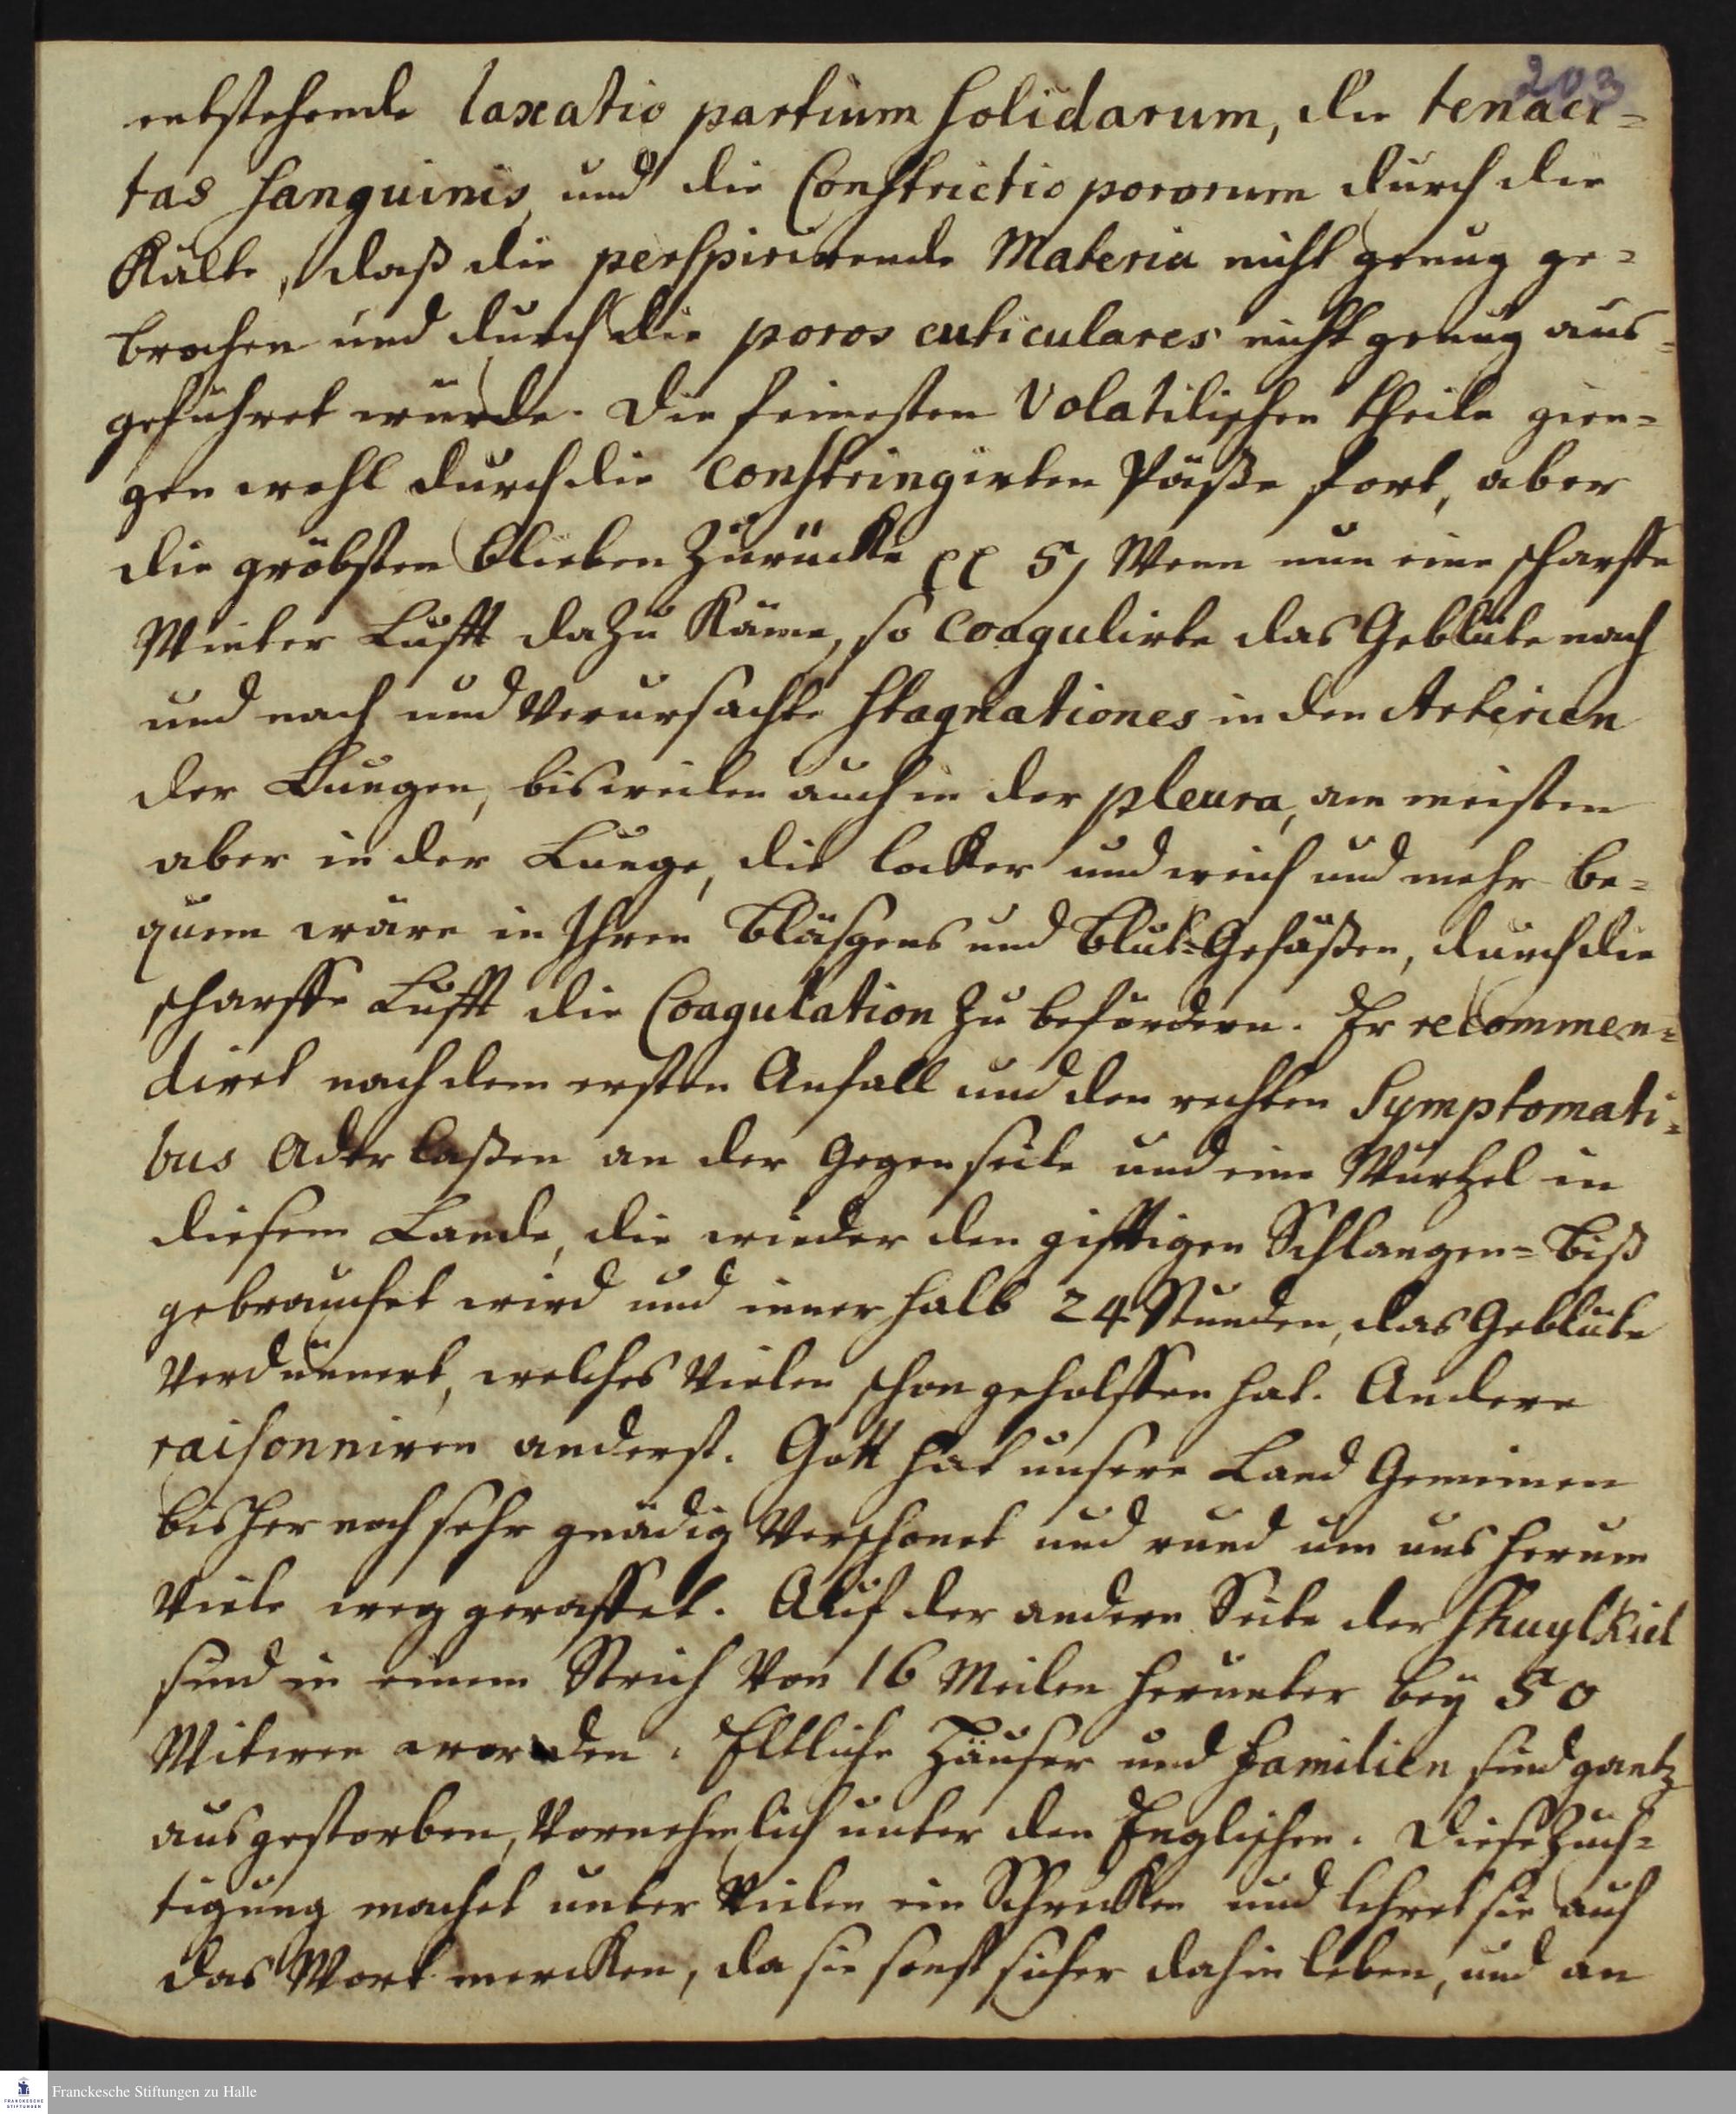 203
entstehende laxatio partium solidarum, die tenaci=
tas sanguinis, und die Constrictio pororum durch die
Kälte, daß die perspirirende Materia nicht genug ge=
brochen und durch die poros cuticulares nicht genug aus=
geführet würde. Die feinesten Volatilischen theile gien=
gen wohl durch die constringirten Päße fort, aber
die gröbsten blieben zurücke pp 5) Wenn nun eine scharffe
Winter Lufft dazu käme, so coagulirte das Geblüte nach
und nach und verursachte stagnationes in den Arterien
der Lungen, bisweilen auch in der pleura, am meisten
aber in der Lunge, die locker und weich und mehr be=
quem wäre in Ihren Bläsgens und Blut-Gefäßen, durch die
scharffe Lufft die Coagulation zu befördern. Er recommen=
diret nach dem ersten Anfall und den rechten Symptomati=
bus Aderlaßen an der Gegenseite und eine Wurtzel in
diesem Lande, die wieder den gifftigen Schlangen=Biß
gebrauchet wird und innerhalb 24 Stunden, das Geblüte
verdünnert, welches vielen schon geholffen hat. Andere
raisonniren anderst. Gott hat unsere Land Gemeinen
bisher noch sehr gnädig verschonet und rund um uns herum
viele weg geraffet. Auf der andern Seite der Skuylkiel
sind in einem Strich von 16 Meilen herunter bey 50
Witwen worden. Etliche Häuser und Familien sind gantz
ausgestorben, vornehmlich unter den Englischen. Diese Züch=
tigung machet unter vielen ein Schrecken und lehret sie auf
das Wort mercken, da sie sonst sicher dahin leben, und an
Franckesche Stiftungen zu Halle
FRANCKESCHE STIFTUNGEN